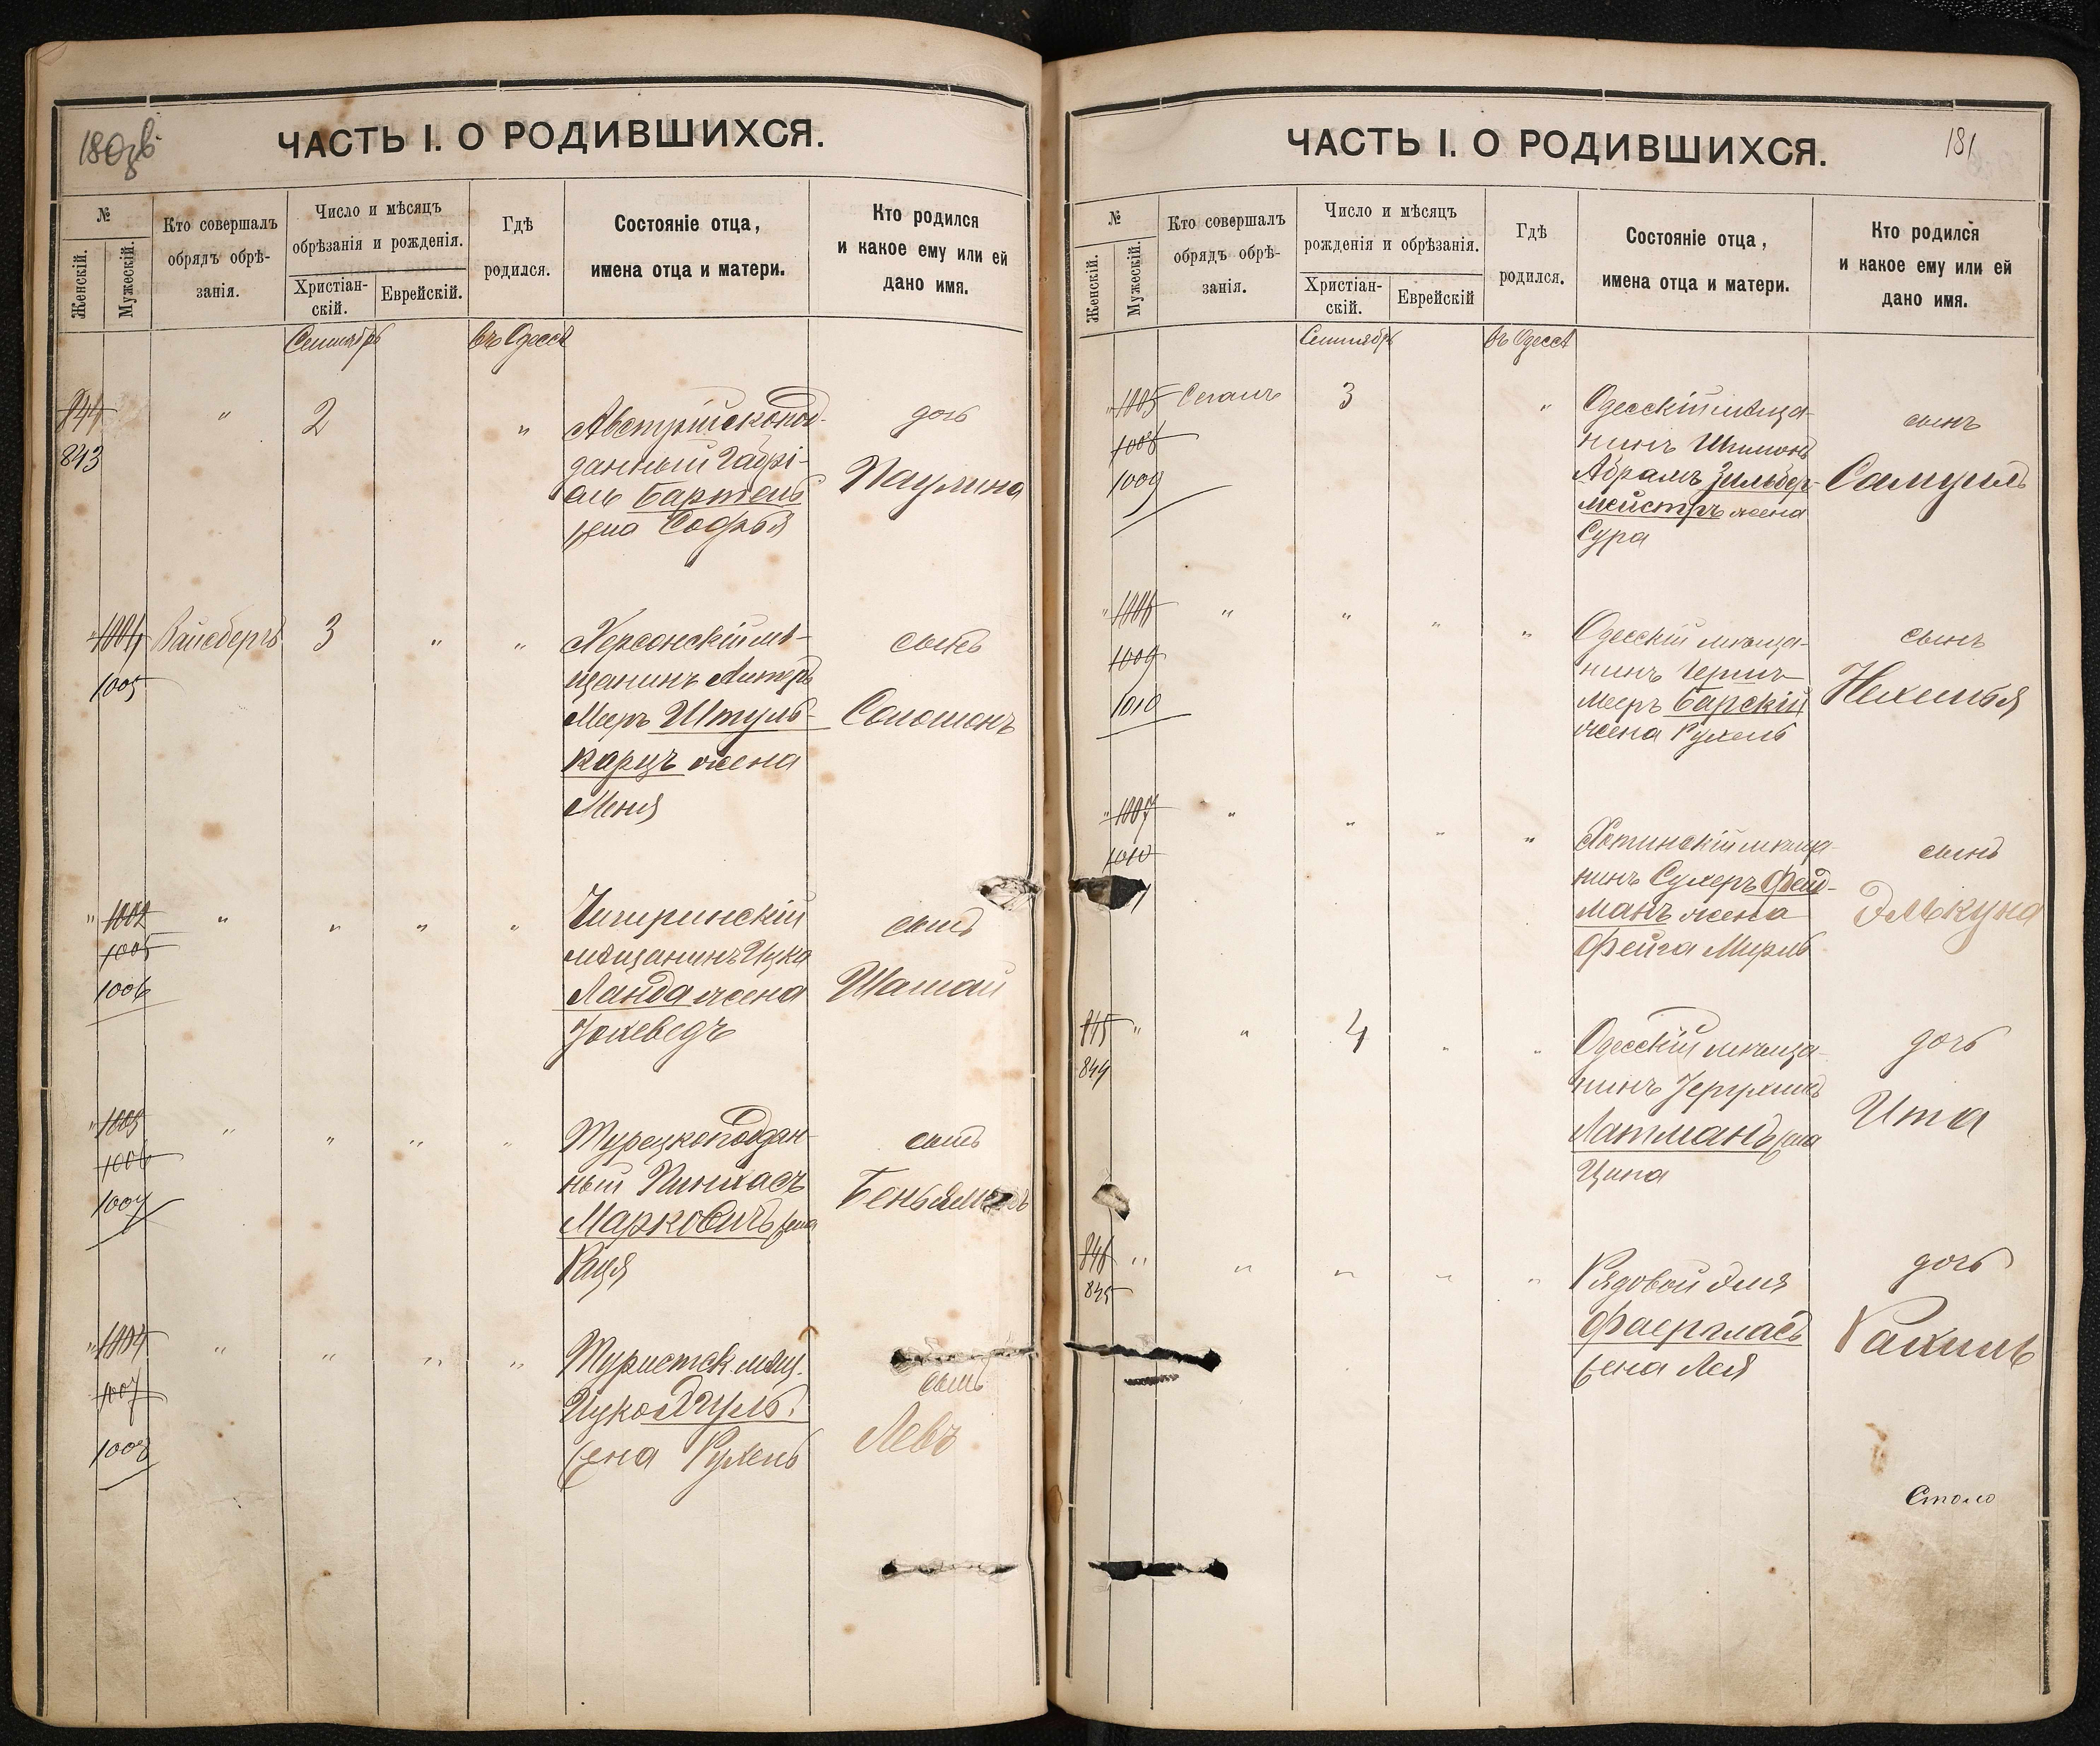 180 об
ЧАСТЬ I. О РОДИВШИХСЯ.
№
Женскій.
Мужескій.
Кто совершалъ
обрядъ обрѣ-
занія.
Число и мѣсяцъ
обрѣзанія и рожденія.
Христіан-
скій.
Еврейскій.
Гдѣ
родился.
Состояніе отца,
имена отца и матери.
Кто родился
и какое ему или ей
дано имя.
Сентябрь
въ Одессѣ
844
843
"
2
"
Австрійскопод-
данный Габрі-
ель Бартель
жена Софья
дочь
Паулина
"
1004
1005
Вайсбергъ
3
"
"
Херсонскій мѣ-
щанинъ
Мееръ Штуль-
карцъ жена
Меня
сынъ
Соломонъ
"
1002
1005
1006
"
"
"
"
Чигиринскій
мѣщанинъ Ицка
Ланда жена
Іохеведъ
сынъ
Шамай
"
1003
1006
1007
"
"
"
"
Турецкоподдан-
ный Пинхасъ
Марковичъ жена
Рася
сынъ
Беньяминъ
"
1004
1007
1008
"
"
"
"
мѣщ.
жена Рухель
сынъ
Левъ
181
ЧАСТЬ I. О РОДИВШИХСЯ.
№
Женскій.
Мужескій.
Кто совершалъ
обрядъ обрѣ-
занія.
Число и мѣсяцъ
рожденія и обрѣзанія.
Христіан-
скій.
Еврейскій
Гдѣ
родился.
Состояніе отца,
имена отца и матери.
Кто родился
и какое ему или ей
дано имя.
Сентябрь
въ Одессѣ
"
1005
1008
1009
Сегалъ
3
"
Одесскій мѣща-
нинъ Шимонъ
Абрамъ Зильбер-
мейстръ жена
Сура
сынъ
Самуилъ
"
1006
1009
1010
"
"
"
"
Одесскій мѣща-
нинъ Гершъ
Мееръ Барскій
жена Рухель
сынъ
Нехемья
"
1007
1010
"
"
"
"
Хотинскій мѣща-
нинъ Сухеръ Фельд-
манъ жена
Фейга Мирль
сынъ
Элькуна
845
844
"
"
4
"
"
Одесскій мѣща-
нинъ Іерухимъ
Латманъ жена
Ципа
дочь
Ита
846
845
"
"
"
"
"
Рядовой Эля
Фаергласъ
жена Лея
дочь
Рахиль